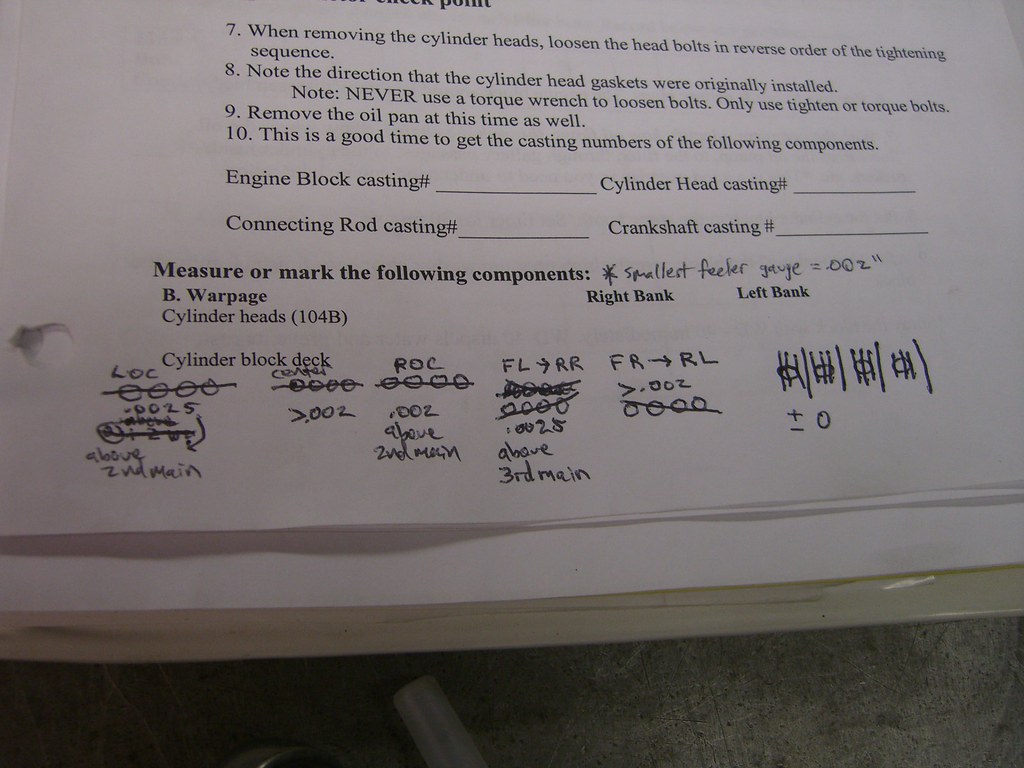 check point
7. When removing the cylinder heads, loosen the head bolts in reverse order of the tightening
sequence.
8. Note the direction that the cylinder head gaskets were originally installed.
Note: NEVER use a torque wrench to loosen bolts. Only use tighten or torque bolts.
9. Remove the oil pan at this time as well.
10. This is a good time to get the casting numbers of the following components.
Engine Block casting# Cylinder Head casting#
Connecting Rod casting# Crankshaft casting #
Measure or mark the following components: * smallest feeler gauge = .002"
B. Warpage Right Bank Left Bank
Cylinder heads (104B)
Cylinder block deck
LOC center ROC FL → RR FR → RL
0000 0000 0000 >.002
.0025 >.002 .002 0000 0000
above .0025 ± 0
above 2nd main above
2nd main 3rd main